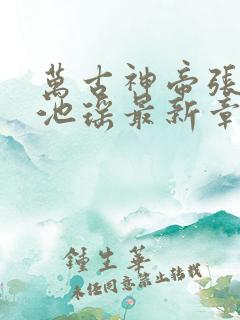 萬古神帝張
池瑤最新章
鍾生華
未經同意禁止轉載